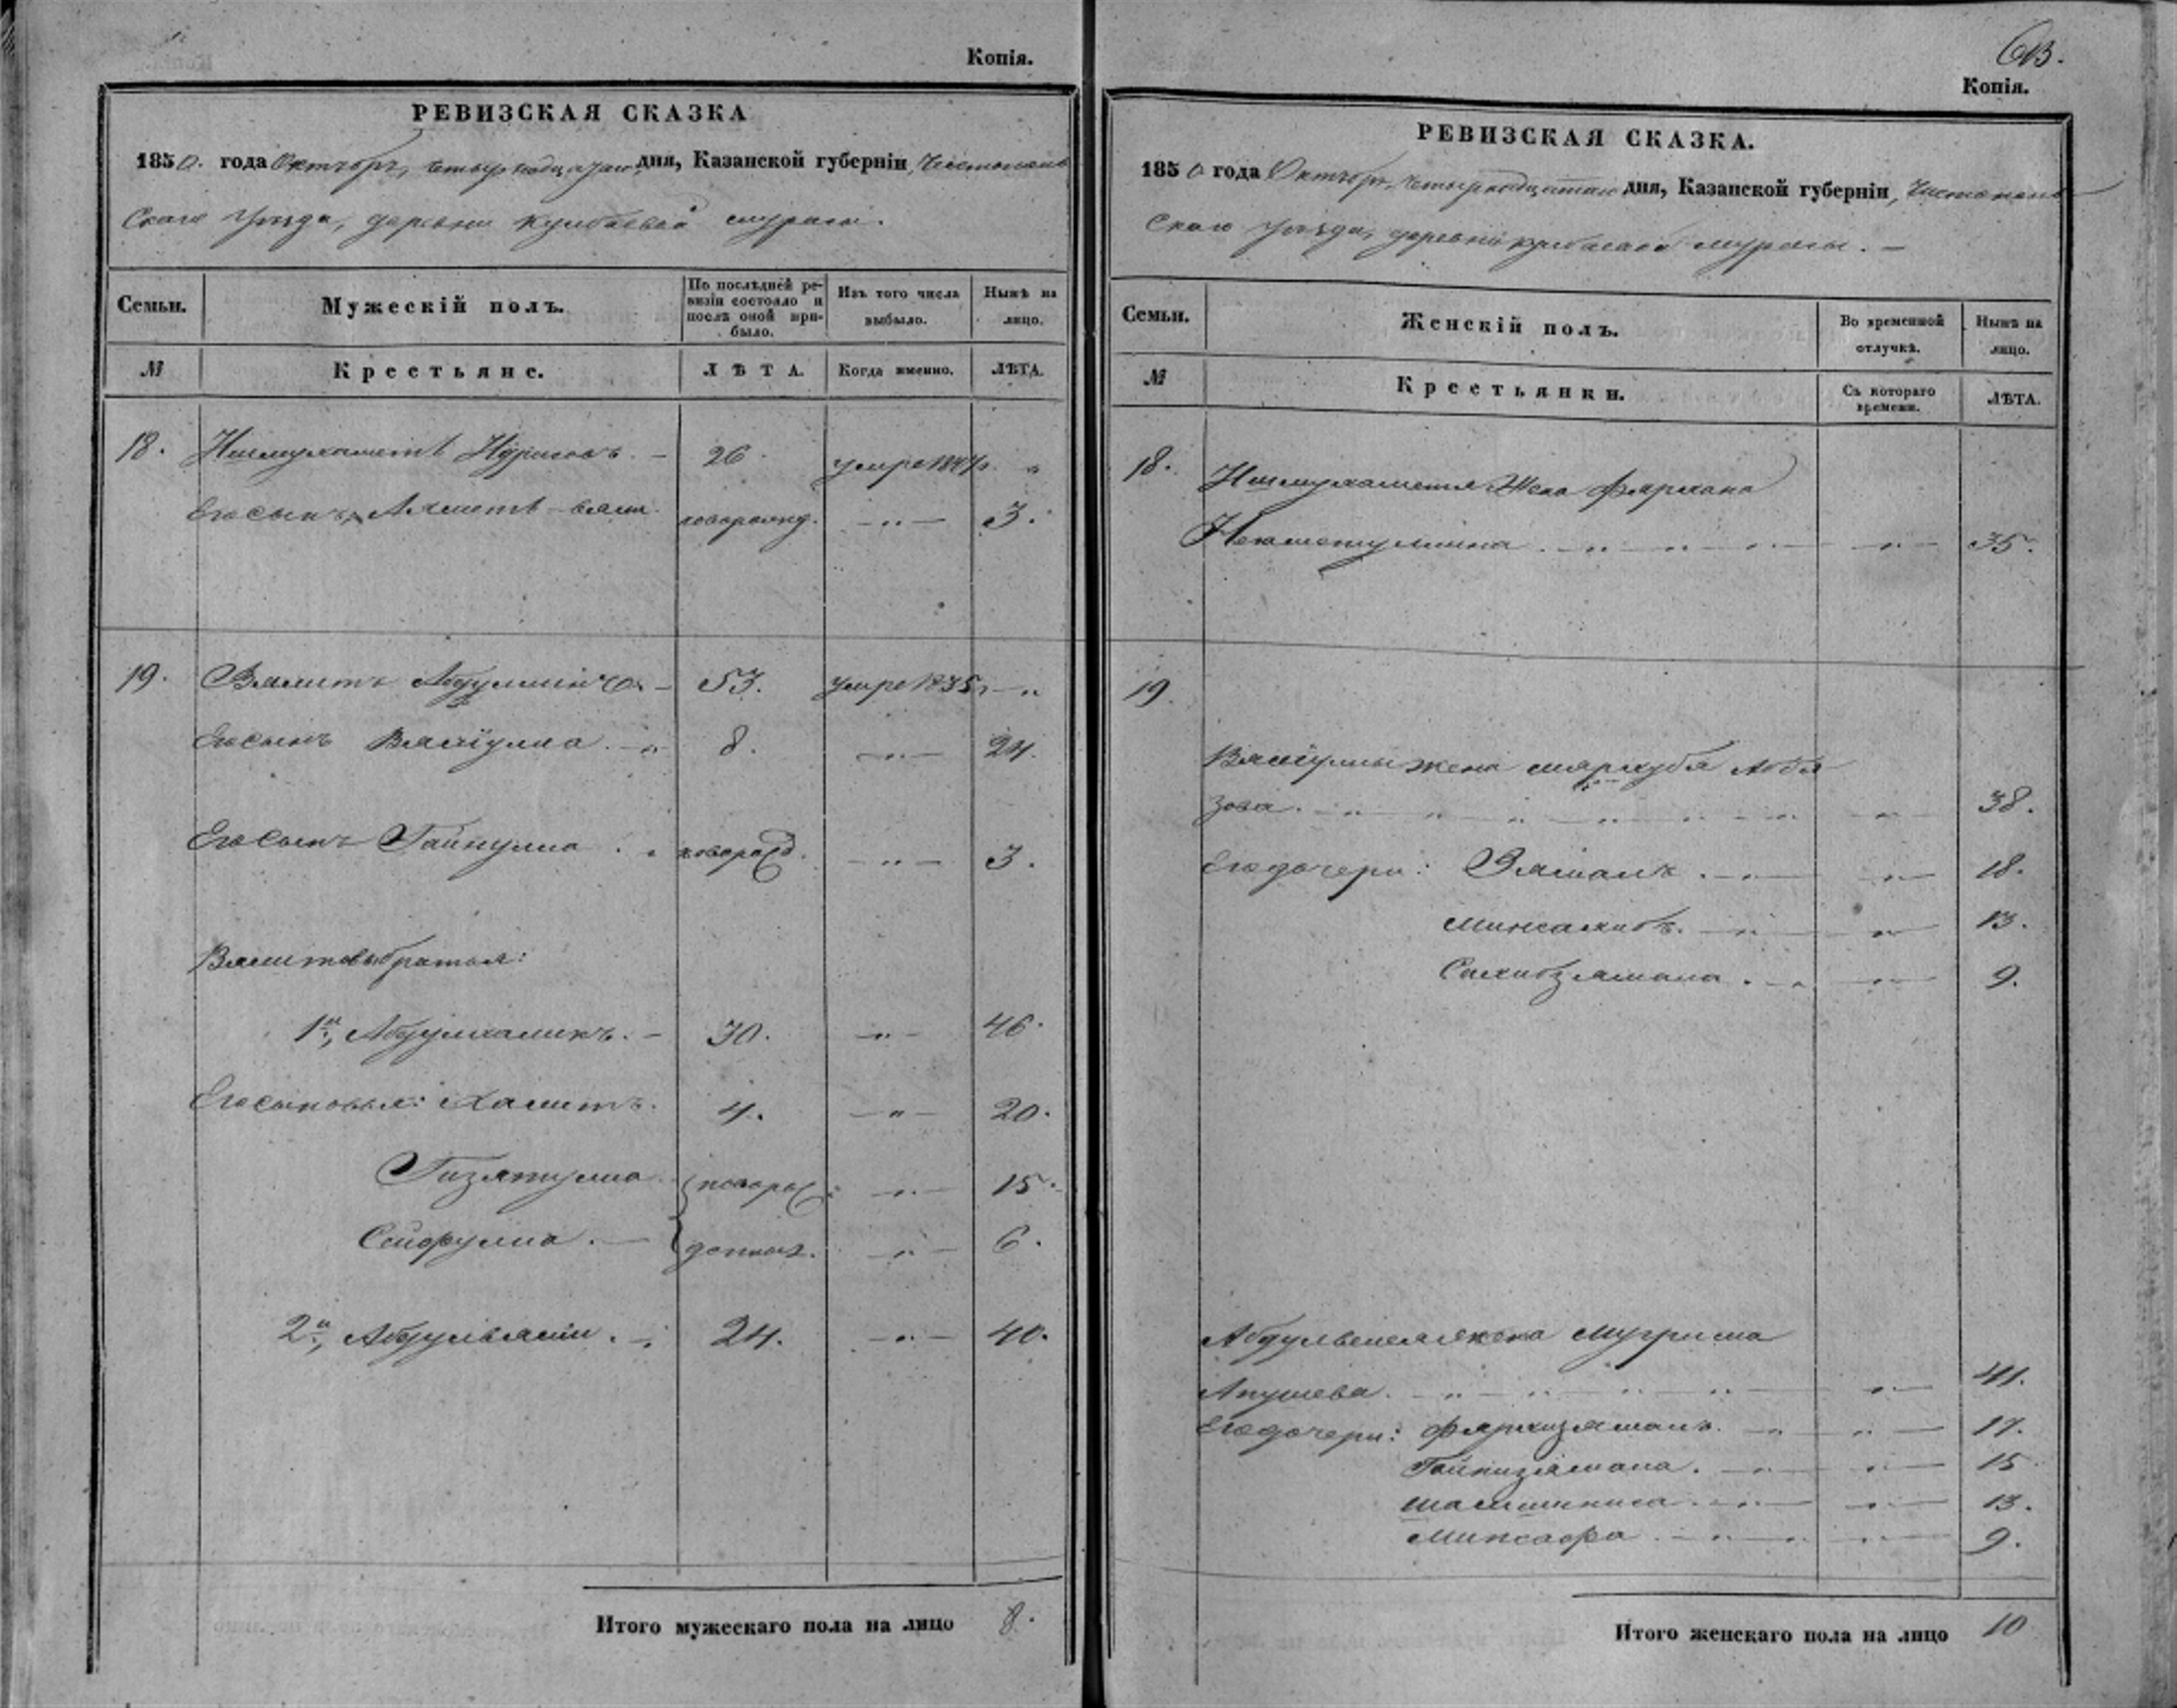 Копія.
РЕВИЗСКАЯ СКАЗКА
1850. года Октября, четырнадцатаго дня, Казанской губерніи, Чистополь
скаго уѣзда, деревни
Семьи. Мужескій полъ. По послѣдней ре-визіи состояло и послѣ оной при-было. Изъ того числа выбыло. Нынѣ на лицо.
№ Крестьяне. ЛѢТА. Когда именно. ЛѢТА.
18. Ишмухаметъ 26. умре 184 "
Его сынъ, Ахметъ-вали новорожд. — " — 3.
19. Вялитъ Абдуллинъ — 53. умре 1835 — "
Его сынъ Вяліулла. — " 8. — " — 24.
Его сынъ Гайнулла. " новорожд. — " — 3.
Вялитовы братья:
1й, Абдулхаликъ. — 30. — " — 46.
Его сыновья: Халитъ. 4. — " — 20.
Гизятулла новорож — " — 15.
Сейфулла. — денные. — " — 6.
2й, Абдулвяли. — 24. — " — 40.
Итого мужескаго пола на лицо 8.
613.
Копія.
РЕВИЗСКАЯ СКАЗКА.
1850 года Октября, четырнадцатаго дня, Казанской губерніи, Чистополь
скаго уѣзда, деревни
Семьи. Женскій полъ. Во временной отлучкѣ. Нынѣ на лицо.
№ Крестьянки. Съ котораго времени. ЛѢТА.
18. Ишмухаметя жена Фархана
Нехметуллина. — " — " — " — " — 35.
19.
Вяліуллы жена Абдя
зова. — " — " — " — " — 38.
Его дочери: Зямаль. — " — " — 18.
Минсахибъ. — " — " — 13.
Сахибзямала. — " — " — 9.
Абдулвялея жена
Апушева. — " — " — " — " — 41.
Его дочери: Фархизямаль. — " — " — 17.
Гайнизямала. — " — " — 15
Шамсиниса. — " — " — 13.
Минсафа. — " — " — 9.
Итого женскаго пола на лицо 10